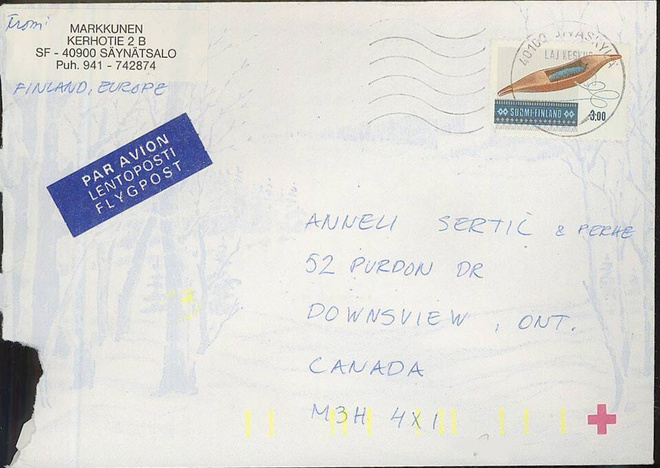 From:
MARKKUNEN
KERHOTIE 2 B
SF - 40900 SÄYNÄTSALO
Puh. 941 - 742874
FINLAND, EUROPE
PAR AVION
LENTOPOSTI
FLYGPOST
40100 JYVÄSKYLÄ
LAJ.KESKUS
SUOMI·FINLAND
3.00
ANNELI SERTIĆ & PERHE
52 PURDON DR
DOWNSVIEW, ONT.
CANADA
M3H 4X1